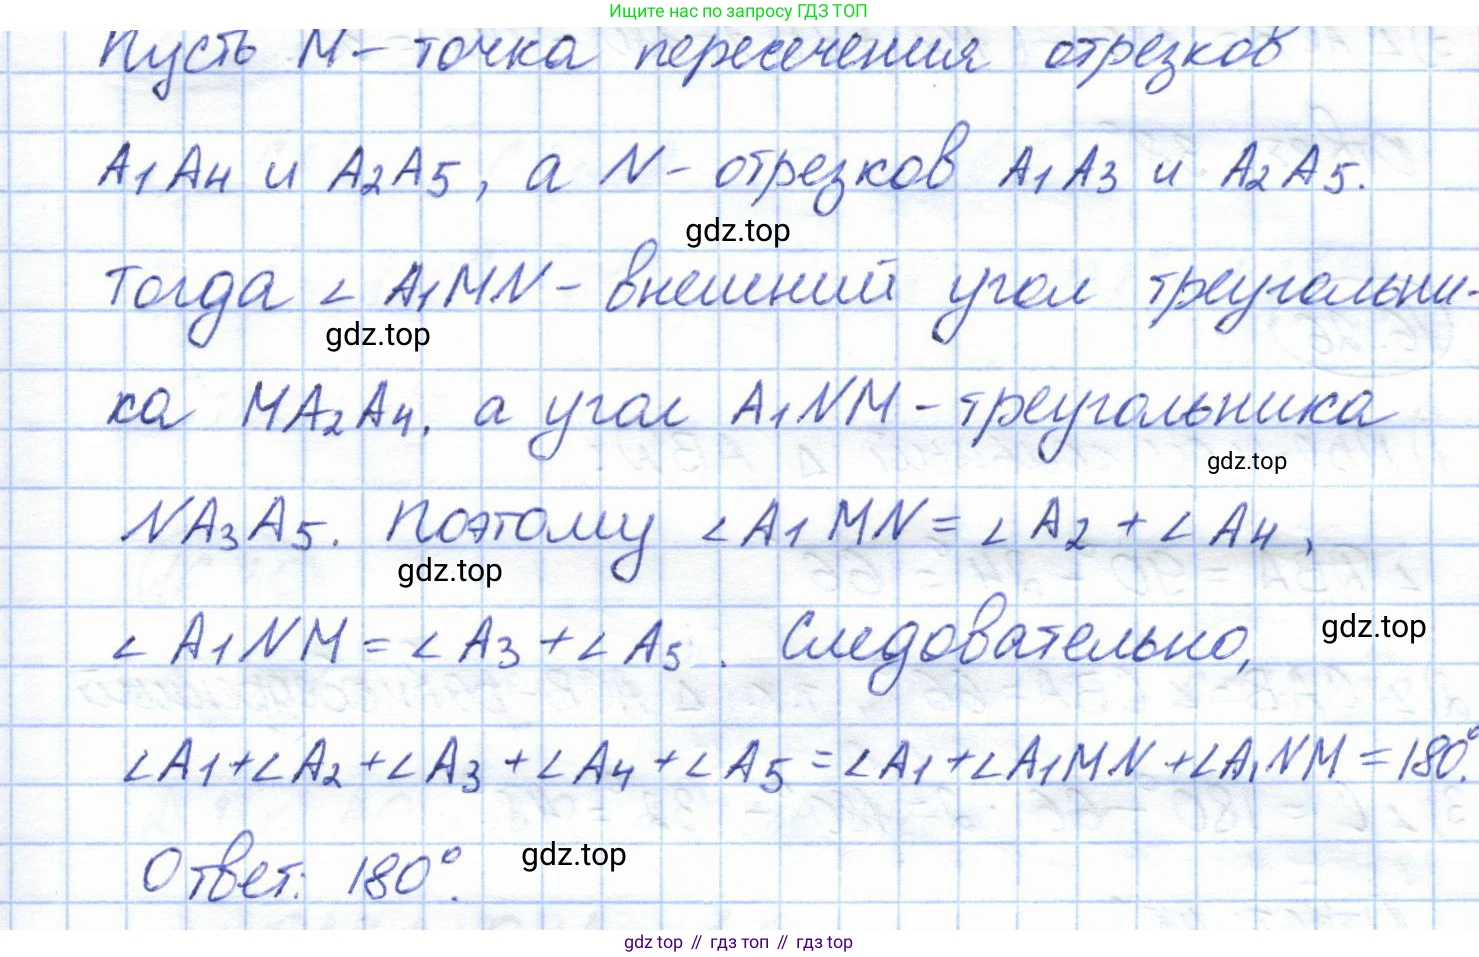 Ищите нас по запросу ГДЗ ТОП
Пусть M - точка пересечения отрезков
A₁A₄ и A₂A₅, а N - отрезков A₁A₃ и A₂A₅.
gdz.top
Тогда ∠ A₁MN - внешний угол треугольни-
gdz.top
ка MA₂A₄, а угол A₁NM - треугольника
gdz.top
NA₃A₅. Поэтому ∠A₁MN = ∠A₂ + ∠A₄,
gdz.top
∠A₁NM = ∠A₃ + ∠A₅. Следовательно,
gdz.top
∠A₁ + ∠A₂ + ∠A₃ + ∠A₄ + ∠A₅ = ∠A₁ + ∠A₁MN + ∠A₁NM = 180°.
Ответ: 180°.
gdz.top
gdz top // гдз топ // гдз top